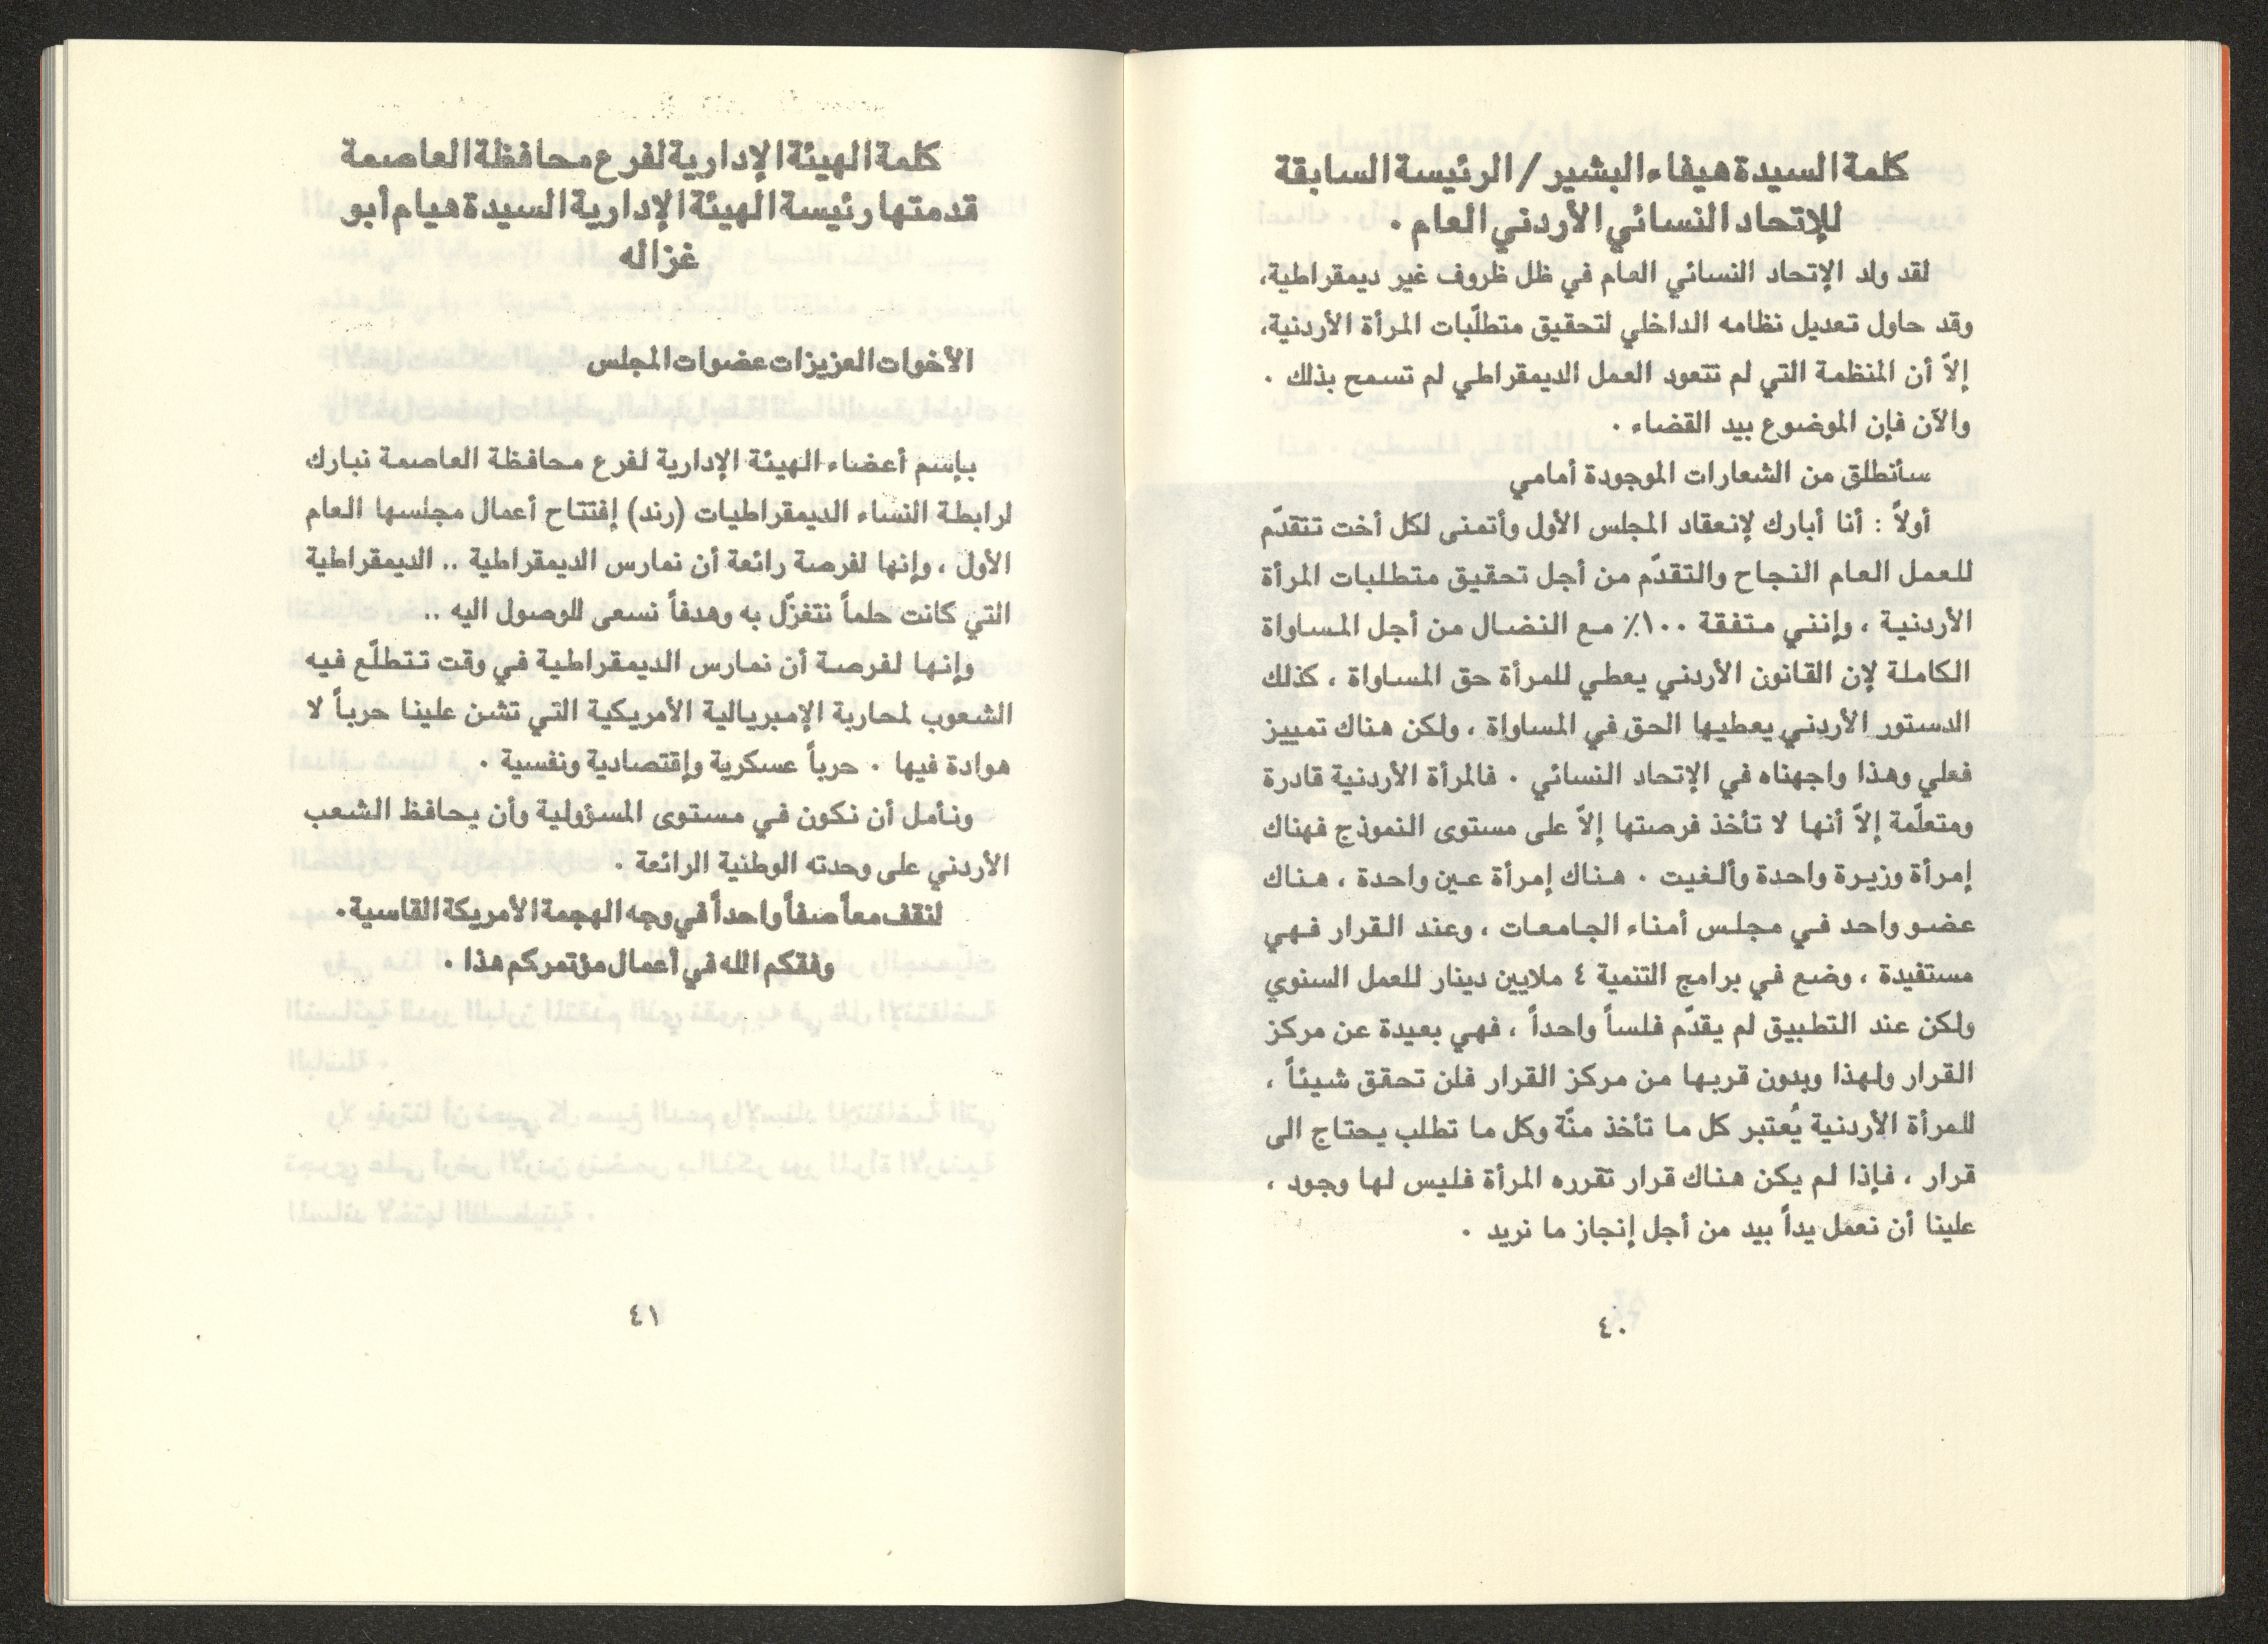 كلمة السيدة هيفاء البشير / الرئيسة السابقة
للإتحاد النسائي الأردني العام .
لقد ولد الإتحاد النسائي العام في ظل ظروف غير ديمقراطية،
وقد حاول تعديل نظامه الداخلي لتحقيق متطلّبات المرأة الأردنية،
إلاّ أن المنظمة التي لم تتعود العمل الديمقراطي لم تسمح بذلك .
والآن فإن الموضوع بيد القضاء .
سأنطلق من الشعارات الموجودة أمامي
أولاً : أنا أبارك لإنعقاد المجلس الأول وأتمنى لكل أخت تتقدّم
للعمل العام النجاح والتقدّم من أجل تحقيق متطلبات المرأة
الأردنية ، وإنني متفقة ١٠٠٪ مع النضال من أجل المساواة
الكاملة لإن القانون الأردني يعطي للمرأة حق المساواة ، كذلك
الدستور الأردني يعطيها الحق في المساواة ، ولكن هناك تمييز
فعلي وهذا واجهناه في الإتحاد النسائي . فالمرأة الأردنية قادرة
ومتعلّمة إلاّ أنها لا تأخذ فرصتها إلاّ على مستوى النموذج فهناك
إمرأة وزيرة واحدة وألغيت . هناك إمرأة عين واحدة ، هناك
عضو واحد في مجلس أمناء الجامعات ، وعند القرار فهي
مستفيدة ، وضع في برامج التنمية ٤ ملايين دينار للعمل السنوي
ولكن عند التطبيق لم يقدّم فلساً واحداً ، فهي بعيدة عن مركز
القرار ولهذا وبدون قربها من مركز القرار فلن تحقق شيئاً ،
للمرأة الأردنية يُعتبر كل ما تأخذ منّة وكل ما تطلب يحتاج الى
قرار ، فإذا لم يكن هناك قرار تقرره المرأة فليس لها وجود ،
علينا أن نعمل يداً بيد من أجل إنجاز ما نريد .
٤٠
كلمة الهيئة الإدارية لفرع محافظة العاصمة
قدمتها رئيسة الهيئة الإدارية السيدة هيام أبو
غزاله
الأخوات العزيزات عضوات المجلس
بإسم أعضاء الهيئة الإدارية لفرع محافظة العاصمة نبارك
لرابطة النساء الديمقراطيات (رند) إفتتاح أعمال مجلسها العام
الأول ، وإنها لفرصة رائعة أن نمارس الديمقراطية .. الديمقراطية
التي كانت حلماً نتغزّل به وهدفاً نسعى للوصول اليه ..
وإنها لفرصة أن نمارس الديمقراطية في وقت تتطلّع فيه
الشعوب لمحاربة الإمبريالية الأمريكية التي تشن علينا حرباً لا
هوادة فيها . حرباً عسكرية وإقتصادية ونفسية .
ونأمل أن نكون في مستوى المسؤولية وأن يحافظ الشعب
الأردني على وحدته الوطنية الرائعة .
لنقف معاً صفاً واحداً في وجه الهجمة الأمريكة القاسية .
وفقكم الله في أعمال مؤتمركم هذا .
٤١